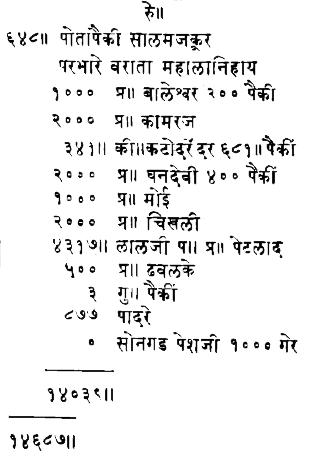 रु॥
६४८॥ पोतापैकी सालमजकूर
परभारे वराता महालानिहाय
१००० प्र॥ बालेश्वर २०० पैकी
२००० प्र॥ कामरज
३४१॥ की॥कठोदरें दर ६८१॥ पैकीं
२००० प्र॥ घनदेवी ४०० पैकीं
१००० प्र॥ मोई
२००० प्र॥ चिखली
४३१७॥ लालजी प॥ प्र॥ पेटलाद
५०० प्र॥ ढवलके
३ गु॥ पैकीं
८७७ पादरे
० सोनगड पेशजी १००० गेर
१४०३९॥
१४६८७॥